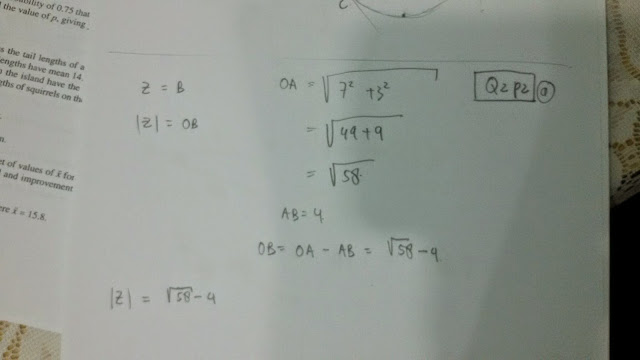 ility of 0.75 that
the value of p, giving
s the tail lengths of a
engths have mean 14.
the island have the
gths of squirrels on th
n.
et of values of x̄ for
and improvement
ere x̄ = 15.8.
C
Z = B
|Z| = OB
OA = √7² + 3²
= √49 + 9
= √58
Q2 p2 a
AB = 4
OB = OA - AB = √58 - 4
|Z| = √58 - 4